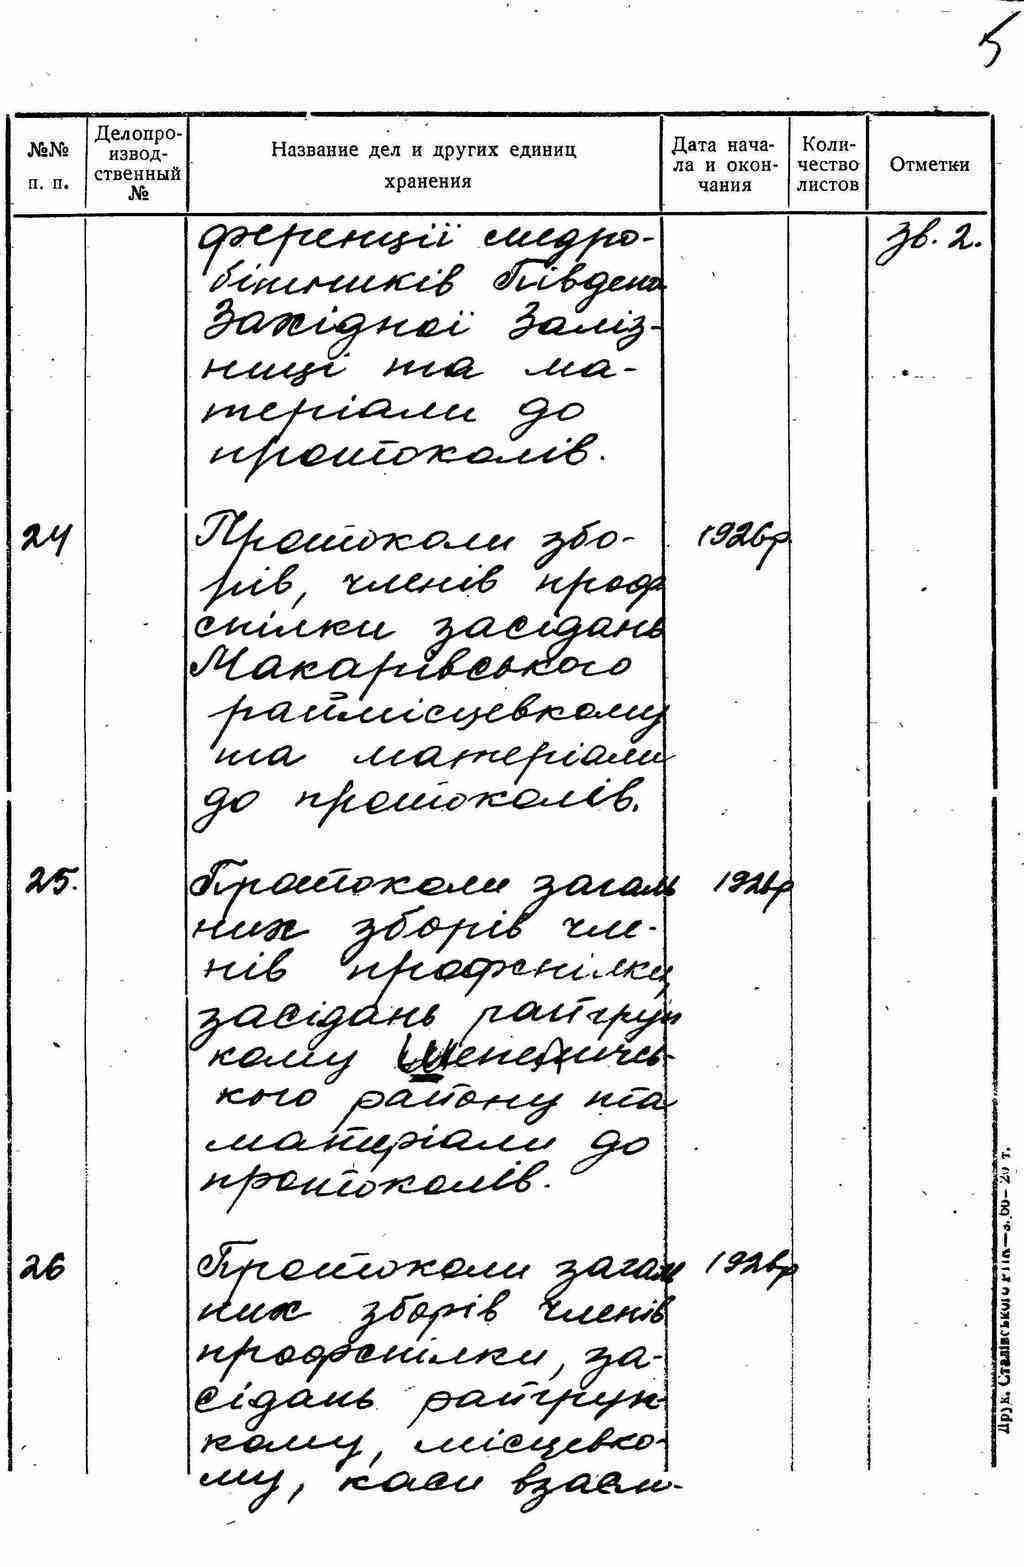 5
№№ п. п.
Делопроизводственный №
Название дел и других единиц хранения
Дата начала и окончания
Количество листов
Отметки
ференції медро-
бітників Південо
Західної Заліз-
ниці та ма-
теріали до
протоколів.
Зв. 2.
24
Протоколи збо-
рів, членів проф
спілки засідань
Макарівського
раймісцевкому
та матеріали
до протоколів.
1926р.
25.
Протоколи загаль
них зборів чле-
нів профспілки,
засідань райгруп
кому
кого району та
матеріали до
протоколів.
1926р
26
Протоколи загаль
них зборів членів
профспілки, за-
сідань райгруп-
кому, місцевко-
му, каси взаєм-
1926р
Друк. Сталінського